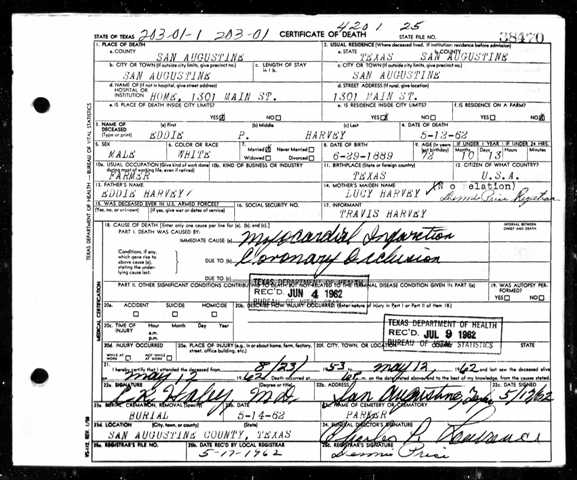 203-01-1 203-01 4201 25
STATE OF TEXAS CERTIFICATE OF DEATH STATE FILE NO. 38470
1. PLACE OF DEATH 2. USUAL RESIDENCE (Where deceased lived. If institution: residence before admission)
a. COUNTY SAN AUGUSTINE a. STATE TEXAS b. COUNTY SAN AUGUSTINE
b. CITY OR TOWN (If outside city limits, give precinct no.) c. LENGTH OF STAY in 1 b. c. CITY OR TOWN (If outside city limits, give precinct no.)
SAN AUGUSTINE SAN AUGUSTINE
d. NAME OF (If not in hospital, give street address) HOSPITAL OR INSTITUTION d. STREET ADDRESS (If rural, give location)
HOME, 1301 MAIN ST. 1301 MAIN ST.
e. IS PLACE OF DEATH INSIDE CITY LIMITS? e. IS RESIDENCE INSIDE CITY LIMITS? f. IS RESIDENCE ON A FARM?
YES NO YES NO YES NO
3. NAME OF DECEASED (Type or print) (a) First (b) Middle (c) Last 4. DATE OF DEATH
EDDIE P. HARVEY 5-12-62
5. SEX 6. COLOR OR RACE 7. Married Never Married Widowed Divorced 8. DATE OF BIRTH 9. AGE (In years last birthday) IF UNDER 1 YEAR IF UNDER 24 HRS. Months Days Hours Minutes
MALE WHITE 6-29-1889 72 10 13
10a. USUAL OCCUPATION (Give kind of work done during most of working life, even if retired) 10b. KIND OF BUSINESS OR INDUSTRY 11. BIRTHPLACE (State or foreign country) 12. CITIZEN OF WHAT COUNTRY?
FARMER TEXAS U.S.A.
13. FATHER'S NAME 14. MOTHER'S MAIDEN NAME
EDDIE HARVEY LUCY HARVEY (No relation)
Dennis Price Registrar
15. WAS DECEASED EVER IN U.S. ARMED FORCES? (Yes, no, or unknown) (If yes, give war or dates of service) 16. SOCIAL SECURITY NO. 17. INFORMANT
TRAVIS HARVEY
18. CAUSE OF DEATH [Enter only one cause per line for (a), (b), and (c).] INTERVAL BETWEEN ONSET AND DEATH
PART I. DEATH WAS CAUSED BY:
IMMEDIATE CAUSE (a) Myocardial Infarction
Conditions, if any, which gave rise to above cause (a), stating the underlying cause last.
DUE TO (b) Coronary Occlusion
DUE TO (c)
PART II. OTHER SIGNIFICANT CONDITIONS CONTRIBUTING TO DEATH BUT NOT RELATED TO THE TERMINAL DISEASE CONDITION GIVEN IN PART I (a) 19. WAS AUTOPSY PERFORMED? YES NO
TEXAS DEPARTMENT OF HEALTH
REC'D JUN 4 1962
BUREAU OF
20a. ACCIDENT SUICIDE HOMICIDE 20b. DESCRIBE HOW INJURY OCCURRED. (Enter nature of injury in Part I or Part II of item 18.)
20c. TIME OF INJURY Hour Month Day Year a.m. p.m.
TEXAS DEPARTMENT OF HEALTH
REC'D JUL 9 1962
BUREAU OF VITAL STATISTICS
20d. INJURY OCCURRED WHILE AT WORK NOT WHILE AT WORK 20e. PLACE OF INJURY (e.g. in or about home, farm, factory, street, office building, etc.) 20f. CITY, TOWN, OR LOCATION COUNTY STATE
21. I hereby certify that I attended the deceased from 8/23/ 53 to May 12, 1962 and last saw the deceased alive
on May 12 1962. Death occurred at m. on the date stated above, and to the best of my knowledge, from the causes stated.
22a. SIGNATURE (Degree or title) 22b. ADDRESS 22c. DATE SIGNED
Haley M.D. San Augustine, 5/12/62
23a. BURIAL, CREMATION, REMOVAL (Specify) 23b. DATE 23c. NAME OF CEMETERY OR CREMATORY
BURIAL 5-14-62 PARKER
23d. LOCATION (City, town, or county) (State) 24. FUNERAL DIRECTOR'S SIGNATURE
SAN AUGUSTINE COUNTY, TEXAS Charles R
25a. REGISTRAR'S FILE NO. 25b. DATE REC'D BY LOCAL REGISTRAR 25c. REGISTRAR'S SIGNATURE
5-17-1962 Dennis Price
TEXAS DEPARTMENT OF HEALTH—BUREAU OF VITAL STATISTICS
MEDICAL CERTIFICATION